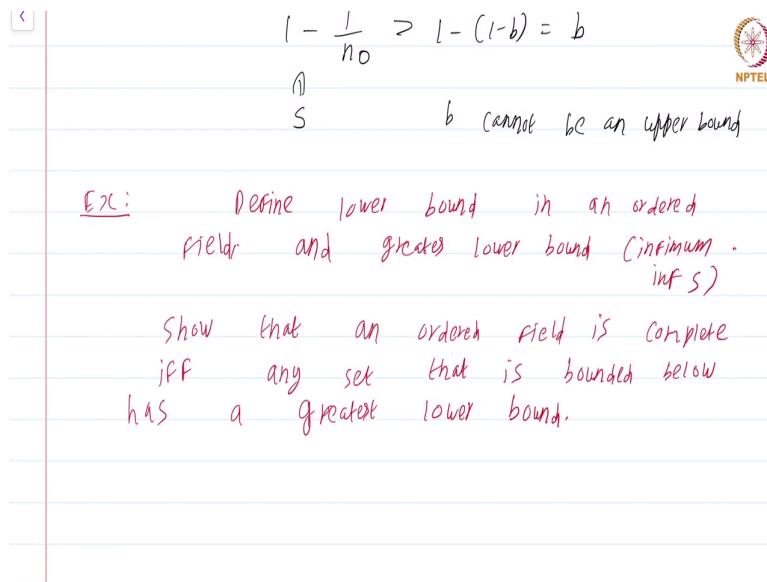 1 - 1/n₀ > 1 - (1-b) = b
NPTEL
S b cannot be an upper bound
Ex: Define lower bound in an ordered
field and greates lower bound (infimum.
inf S)
Show that an ordered field is complete
iff any set that is bounded below
has a greatest lower bound.